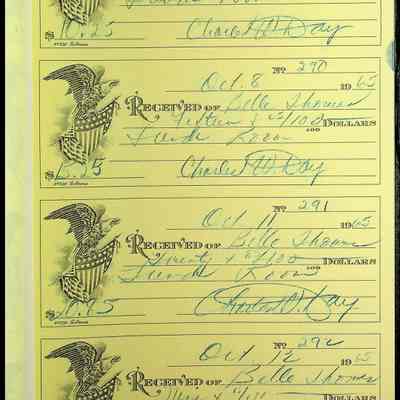 Charles W. Day
$ 10.25
No 290
Oct. 8 1965
RECEIVED OF Belle Thomas
Fifteen & 25/100 DOLLARS
Lunch Room
$ 15.25 Charles W. Day
No 291
Oct 11 1965
RECEIVED OF Belle Thomas
Twenty & /100 DOLLARS
Lunch Room
Charles W. Day
No 292
Oct 12 1965
RECEIVED OF Belle Thomas
DOLLARS